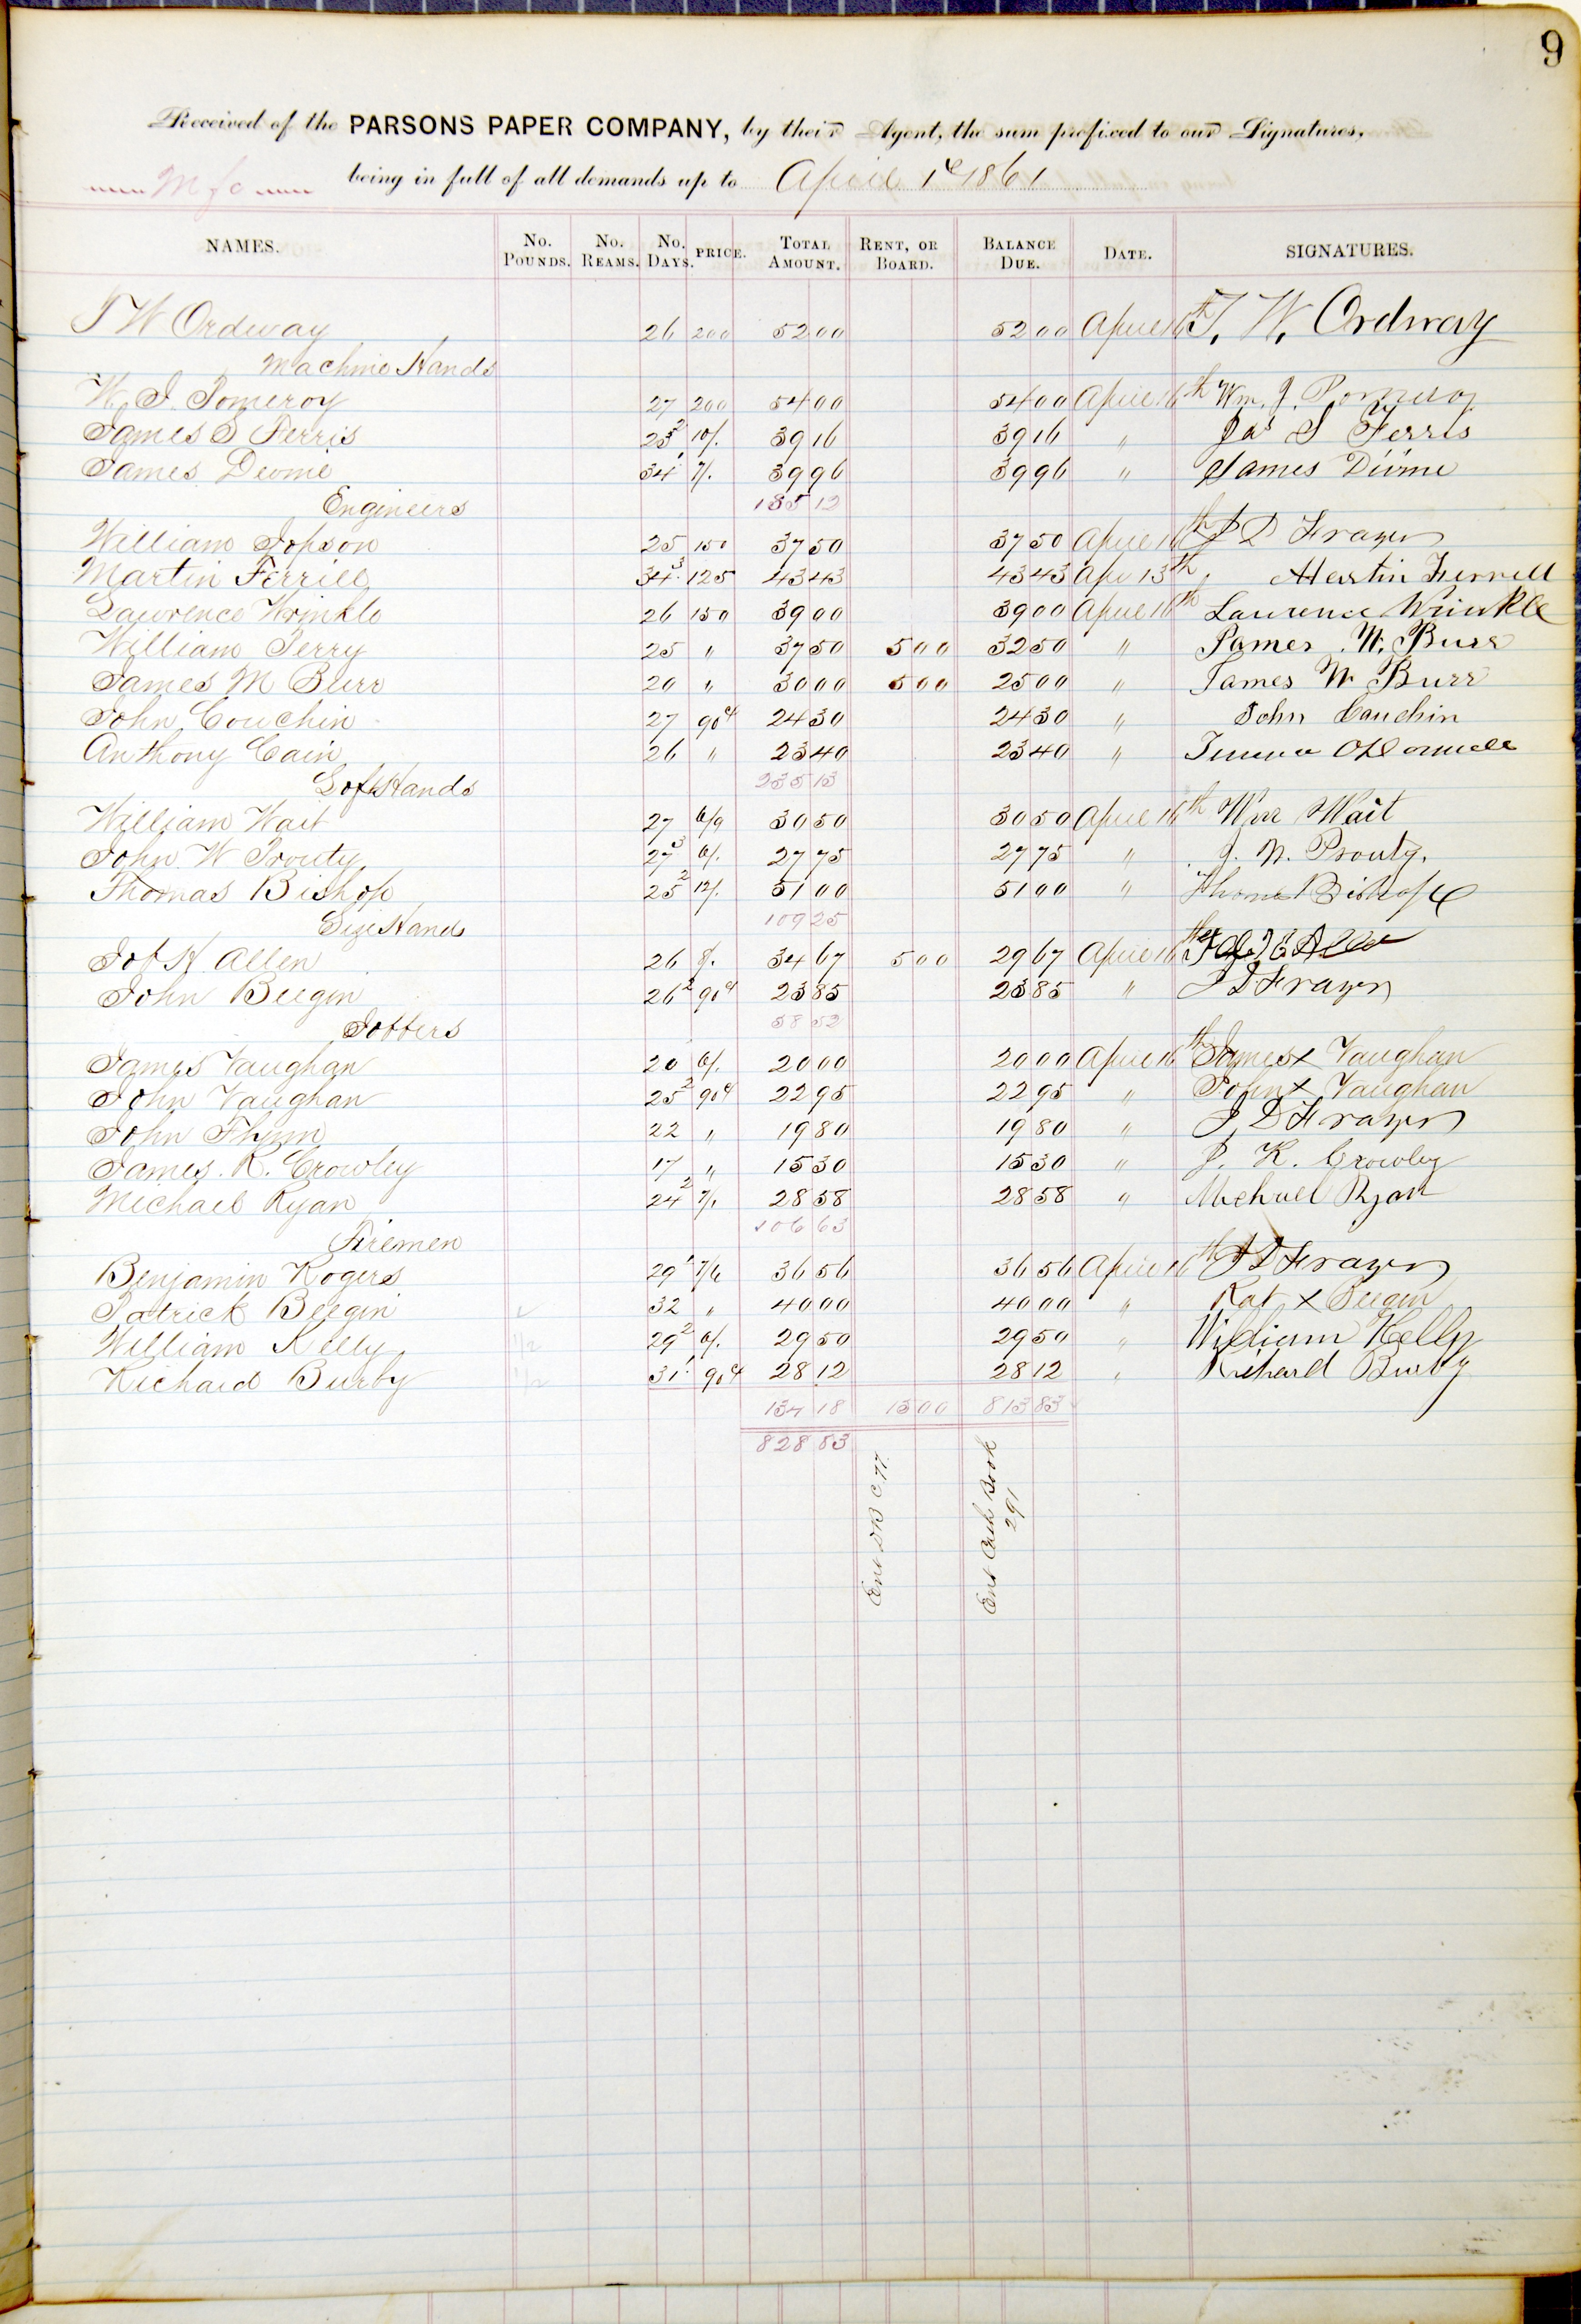 9
Received of the PARSONS PAPER COMPANY, by their Agent, the sum prefixed to our Signatures,
being in full of all demands up to April 1st 1861
NAMES. No. Pounds. No. Reams. No. Days. PRICE. Total Amount. Rent, or Board. Balance Due. Date. SIGNATURES.
T W Ordway 26 200 52 00 52 00 April 16th T. W. Ordway
Machine Hands
W. J. Pomeroy 27 200 54 00 54 00 April 16th Wm. J. Pomeroy
James S Ferris 23 2 10/. 39 16 39 16 " Jas S Ferris
James Devine 34 1 7/. 39 96 39 96 " James Divine
Engineers 185 12
William Jopson 25 150 37 50 37 50 April 16th J D Frazer
Martin Ferrill 34 3 125 43 43 43 43 Apr 13th Martin Ferrell
Lawrence Wrinkle 26 150 39 00 39 00 April 16th Lawrence Wrinkle
William Perry 25 " 37 50 5 00 32 50 " James W. Burr
James M Burr 20 " 30 00 5 00 25 00 " James W Burr
John Couchin 27 90c 24 30 24 30 " John Cauchin
Anthony Cain 26 " 23 40 23 40 "
Loft Hands 235 13
William Wait 27 6/9 30 50 30 50 April 16th Wm Wait
John W Prouty 27 3 6/. 27 75 27 75 " J. W. Prouty.
Thomas Bishop 25 2 12/. 51 00 51 00 " Thomas Bishop
Size Hands 109 25
Job H Allen 26 8/. 34 67 5 00 29 67 April 16th
John Beegin 26 2 90c 23 85 23 85 " J D Frazer
Jobbers 58 52
James Vaughan 20 6/. 20 00 20 00 April 16th James x Vaughan
John Vaughan 25 2 90c 22 95 22 95 " John x Vaughan
John Flynn 22 " 19 80 19 80 " J D Frazer
James. R. Crowley 17 " 15 30 15 30 " J. R. Crowley
Michael Ryan 24 2 7/. 28 58 28 58 " Michael Ryan
Firemen 106 63
Benjamin Rogers 29 1 7/6 36 56 36 56 April 16th J D Frazer
Patrick Beegin 32 " 40 00 40 00 " Pat x Beegin
William Kelly 1/2 29 2 6/. 29 50 29 50 " William Kelly
Richard Burby 1/2 31 1 90c 28 12 28 12 " Richard Burby
134 18 15 00 813 83
828 83
Ent D B C 77.
Ent Cash Book
291